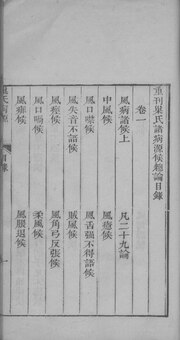 重刊巢氏諸病源候總論目錄
卷一
風病諸候上 凡二十九論
中風候 風癔候
風口噤候 風舌强不得語候
風失音不語候 賊風候
風痙候 風角弓反張候
風口喎候 柔風候
風痱候 風腲退候
目錄